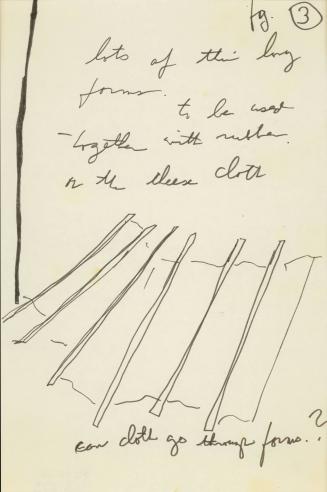 pg. 3
lots of thin long
forms.
to be used
- together with rubber.
or the cheese cloth
can cloth go through forms.?